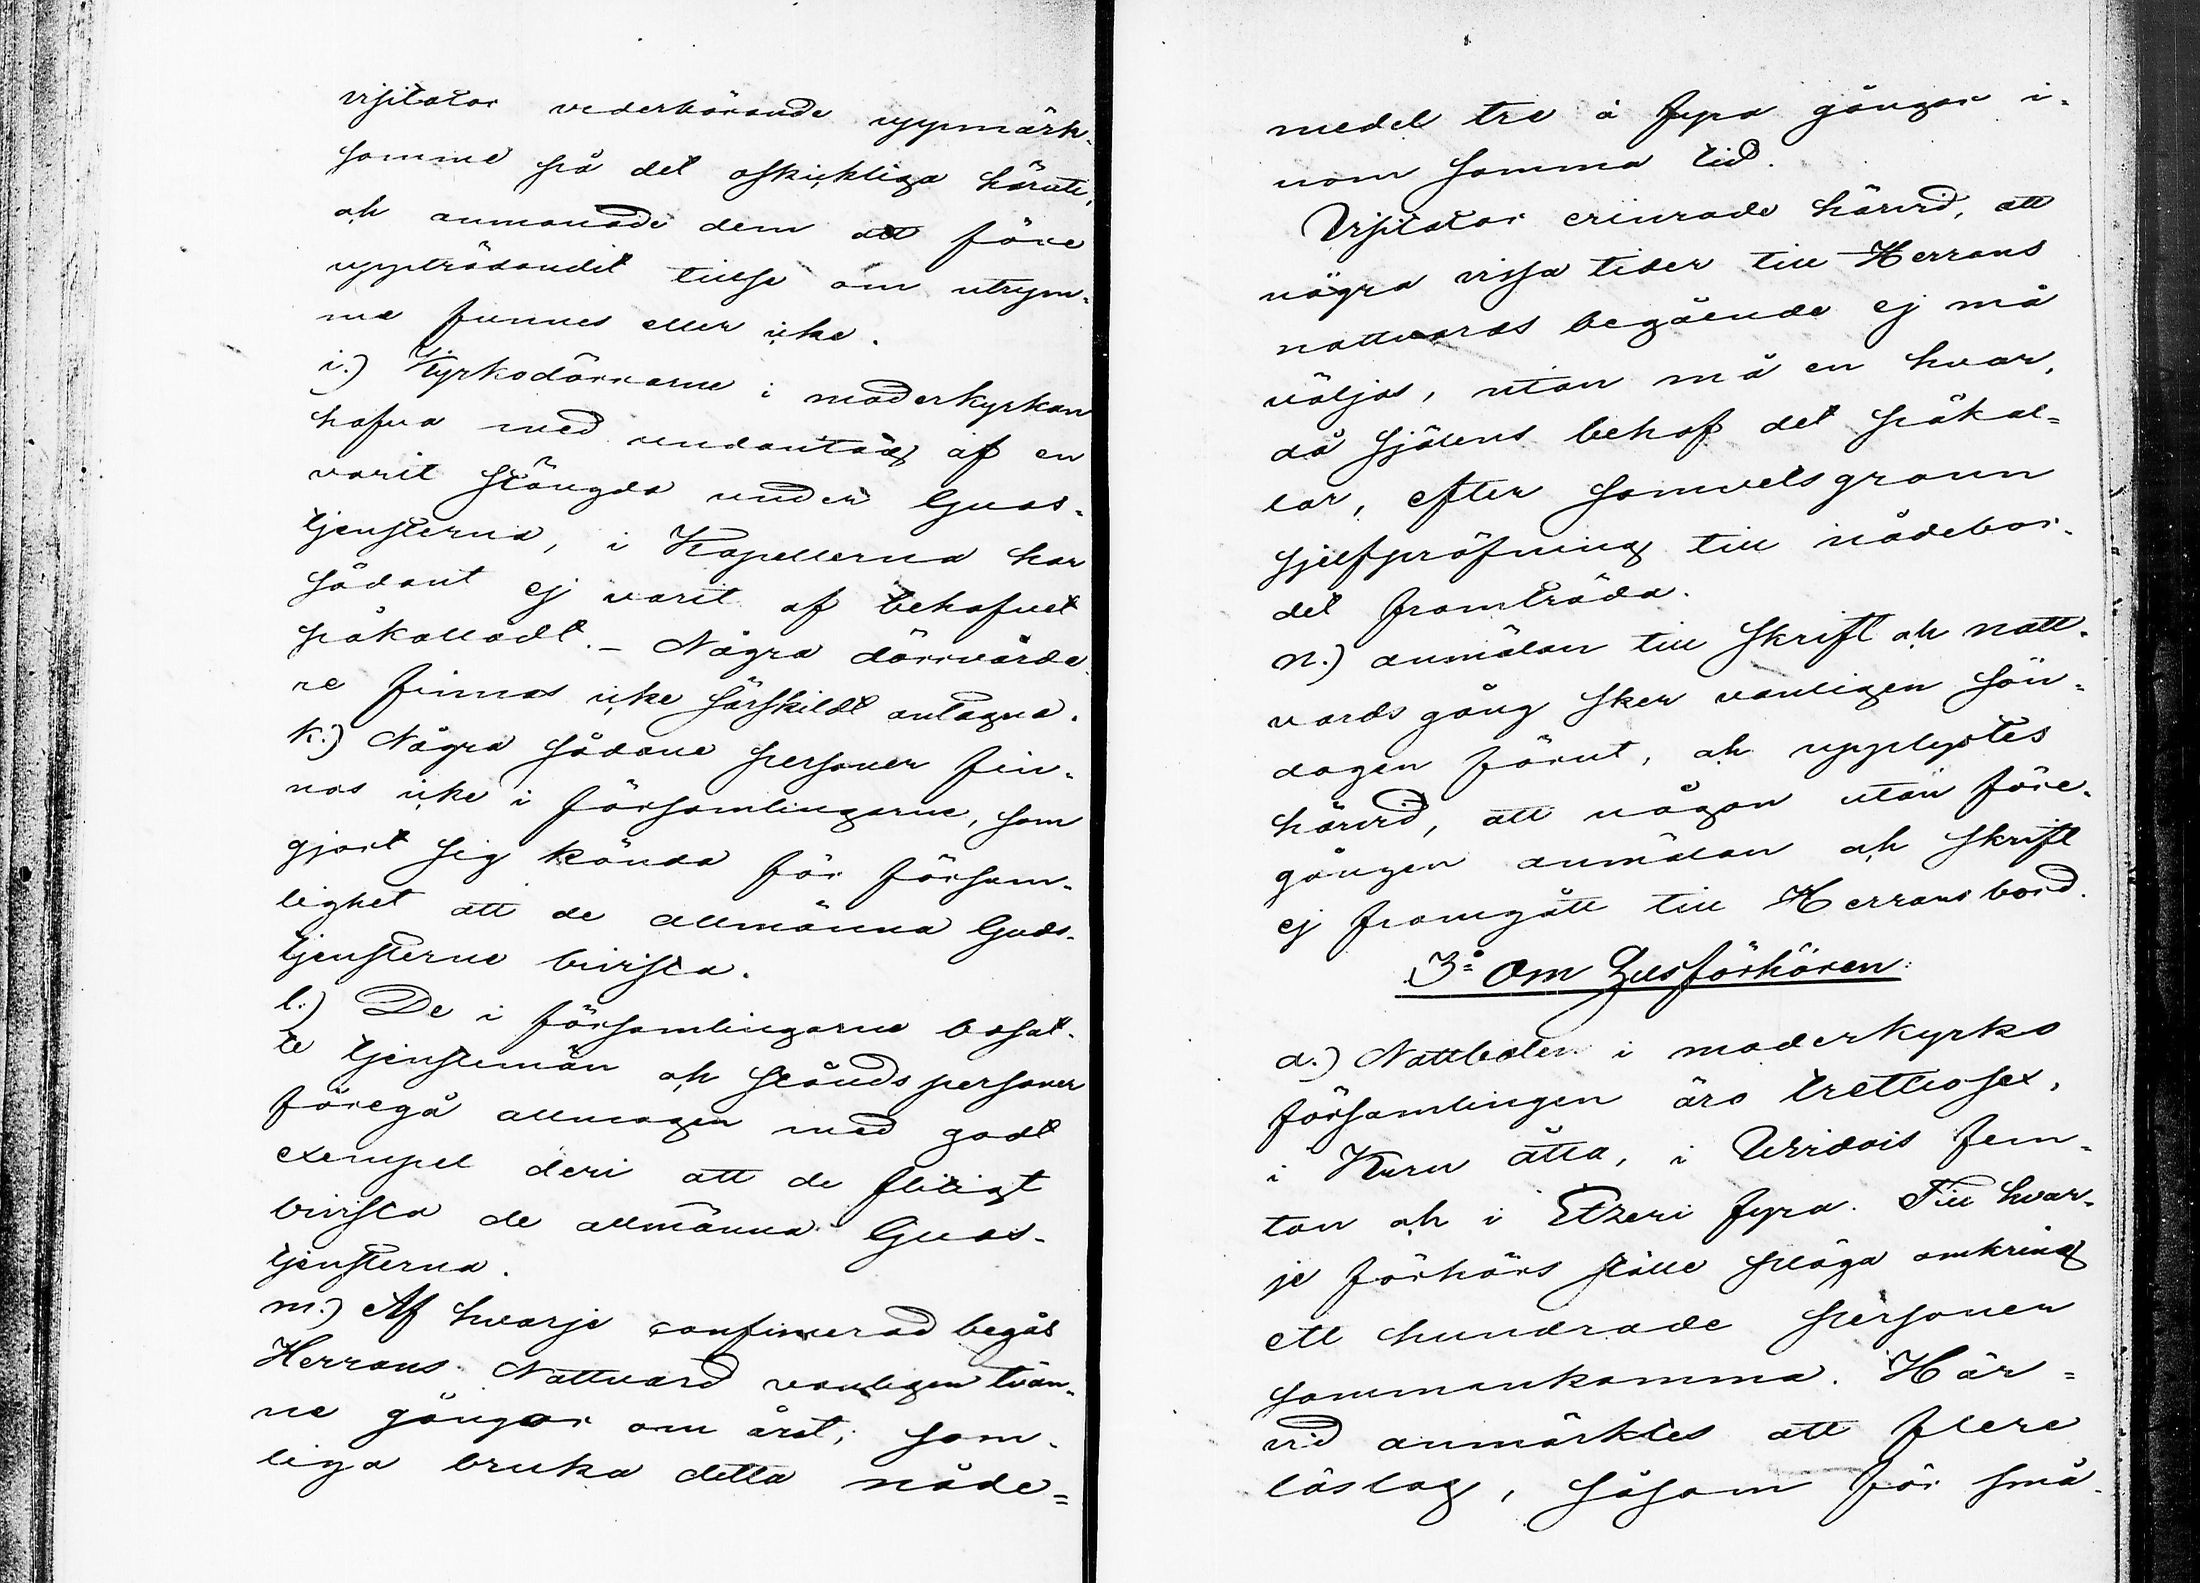 visitator vederbörande uppmärk-
samme på det oskickliga häruti,
och anmanade dem att före
uppträdandet tillse om utrym-
me funnes eller icke.
i.) Kyrkodörrarne i moderkyrkan
hafva med undantag af en
varit stängda under Guds-
tjensterna, i Kapellerna har
sådant ej varit af behofvet
påkalladt. – Några dörrvårda-
re finnas icke särskildt antagna.
k.) Några sådane personer fin-
nas icke i församlingarne, som
gjort sig kända för försum-
lighet att de allmänna Guds-
tjensterne bivista.
l.) De i församlingarne bosat-
te tjenstemän och ståndspersoner
föregå allmogen med godt
exempel deri att de flitigt
bivista de allmänna Guds-
tjensterna.
m.) Af hvarje confirmerad begås
Herrans Nattvard vanligen tvän-
ne gånger om året; som-
liga bruka detta nåde=
medel tre à fyra gånger i-
nom samma tid.
Visitator erinrade härvid, att
några vissa tider till Herrans
nattvards begående ej må
väljas, utan må en hvar,
då själens behof det påkal=
lar, efter samvetsgrann
sjelfpröfning till nådebor-
det framträda.
n.) anmälan till skrift och natt-
vards gång sker vanligen sön-
dagen förut, och upplystes
härvid, att någon utan före-
gången anmälan och skrift
ej framgått till Herrans bord.
3:o Om Husförhören:
a.) Nattbolen i moderkyrko
församlingen äro trettiosex,
i Keuru åtta, i Virdois fem-
ton och i Etzeri fyra. Till hvar-
je förhörs ställe pläga omkring
ett hundrade personer
sammankomma. Här=
vid anmärktes att flere
läslag, såsom för små